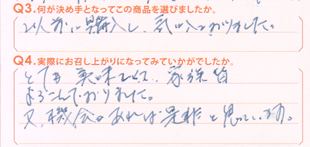 Q3.何が決め手となってこの商品を選びましたか。
以前に購入し、気に入っておりました。
Q4.実際にお召し上がりになってみていかがでしたか。
とても美味しくて、家族皆
よろこんでおりました。
又、機会があれば是非と思っています。